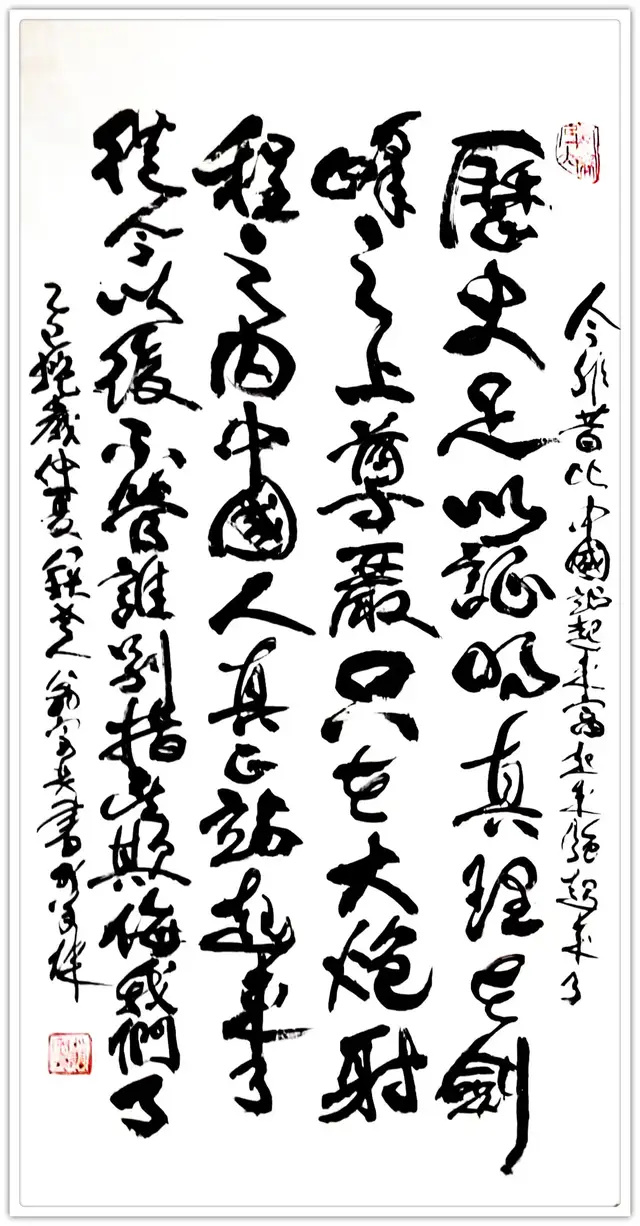 今非昔比中國站起來富起來強起來了
歷史足以証明真理在劍
峰之上尊嚴只在大炮射
程之内中國人真正站起來了
從今以後不管誰別指望欺侮我們了
乙巳蛇歲仲夏八秩老人書於